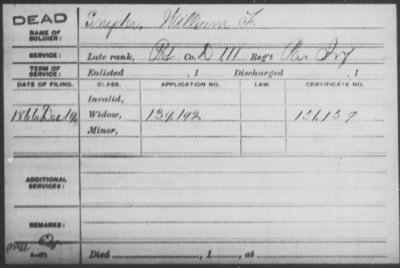 DEAD
NAME OF SOLDIER: Snyder, William F.
SERVICE: Late rank, Pvt Co. D, 111 Reg't Pa. Inf
TERM OF SERVICE: Enlisted , 1 Discharged , 1
DATE OF FILING. CLASS. APPLICATION NO. LAW CERTIFICATE NO.
Invalid,
1866 Dec 14 Widow, 139,192 131,137
Minor,
ADDITIONAL SERVICES:
REMARKS:
Died , 1 , at